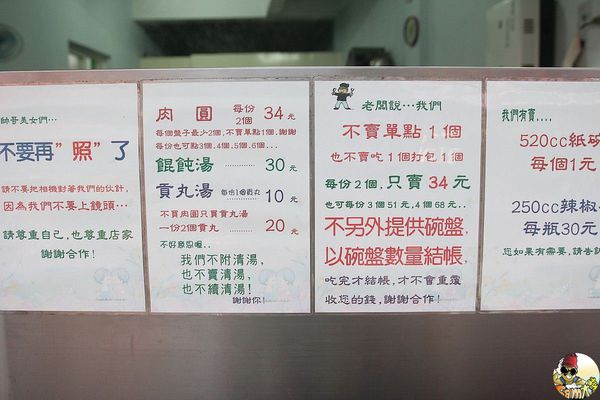 帥哥美女們...
不要再"照"了
請不要把相機對著我們的伙計,
因為我們不要上鏡頭...
請尊重自己,也尊重店家
謝謝合作!
肉圓 每份2個 34元
每個盤子最少2個,不賣單點1個,謝謝
每份也可點3個.4個.5個.6個...
餛飩湯 ............ 30元
貢丸湯 每份1個貢丸 10元
不買肉圓只買貢丸湯
一份2個貢丸 ........ 20元
不好意思喔..
我們不附清湯,
也不賣清湯,
也不續清湯!
謝謝你!
老闆說...我們
不賣單點1個
也不賣吃1個打包1個
每份2個,只賣34元
也可每份3個51元,4個68元..
不另外提供碗盤,
以碗盤數量結帳,
吃完才結帳,才不會重覆
收您的錢,謝謝合作!
我們有賣....
520cc紙碗
每個1元
250cc辣椒
每瓶30元
您如果有需要,請告訴